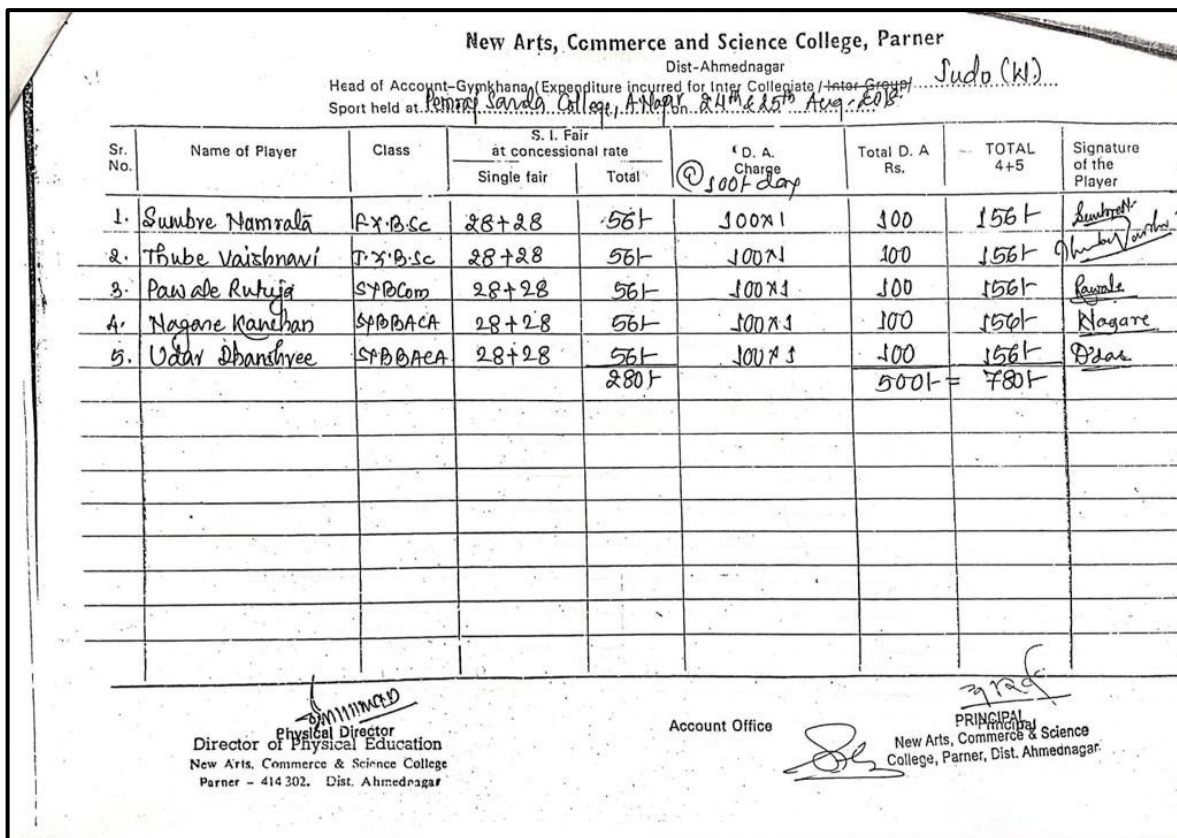 New Arts, Commerce and Science College, Parner
Dist-Ahmednagar
Head of Account-Gymkhana (Expenditure incurred for Inter Collegiate / Inter Group) Judo (W)
Sport held at Pemraj Sarda College, A.Nagar on 24th & 25th Aug-2018
Sr. No. Name of Player Class S. I. Fair at concessional rate Single fair Total D. A. Charge @ 100/- day Total D. A Rs. TOTAL 4+5 Signature of the Player
1. Sumbre Namrata F.Y.B.Sc 28+28 56/- 100x1 100 156/-
2. Thube Vaishnavi T.Y.B.Sc 28+28 56/- 100x1 100 156/-
3. Pawale Rutuja SYBCom 28+28 56/- 100x1 100 156/- Pawale
4. Nagare Kanchan SYBBACA 28+28 56/- 100x1 100 156/- Nagare
5. Udar Dhanshree SYBBACA 28+28 56/- 100x1 100 156/-
280/- 500/- = 780/-
Physical Director
Director of Physical Education
New Arts, Commerce & Science College
Parner - 414 302. Dist. Ahmednagar
Account Office
PRINCIPAL
Principal
New Arts, Commerce & Science
College, Parner, Dist. Ahmednagar.